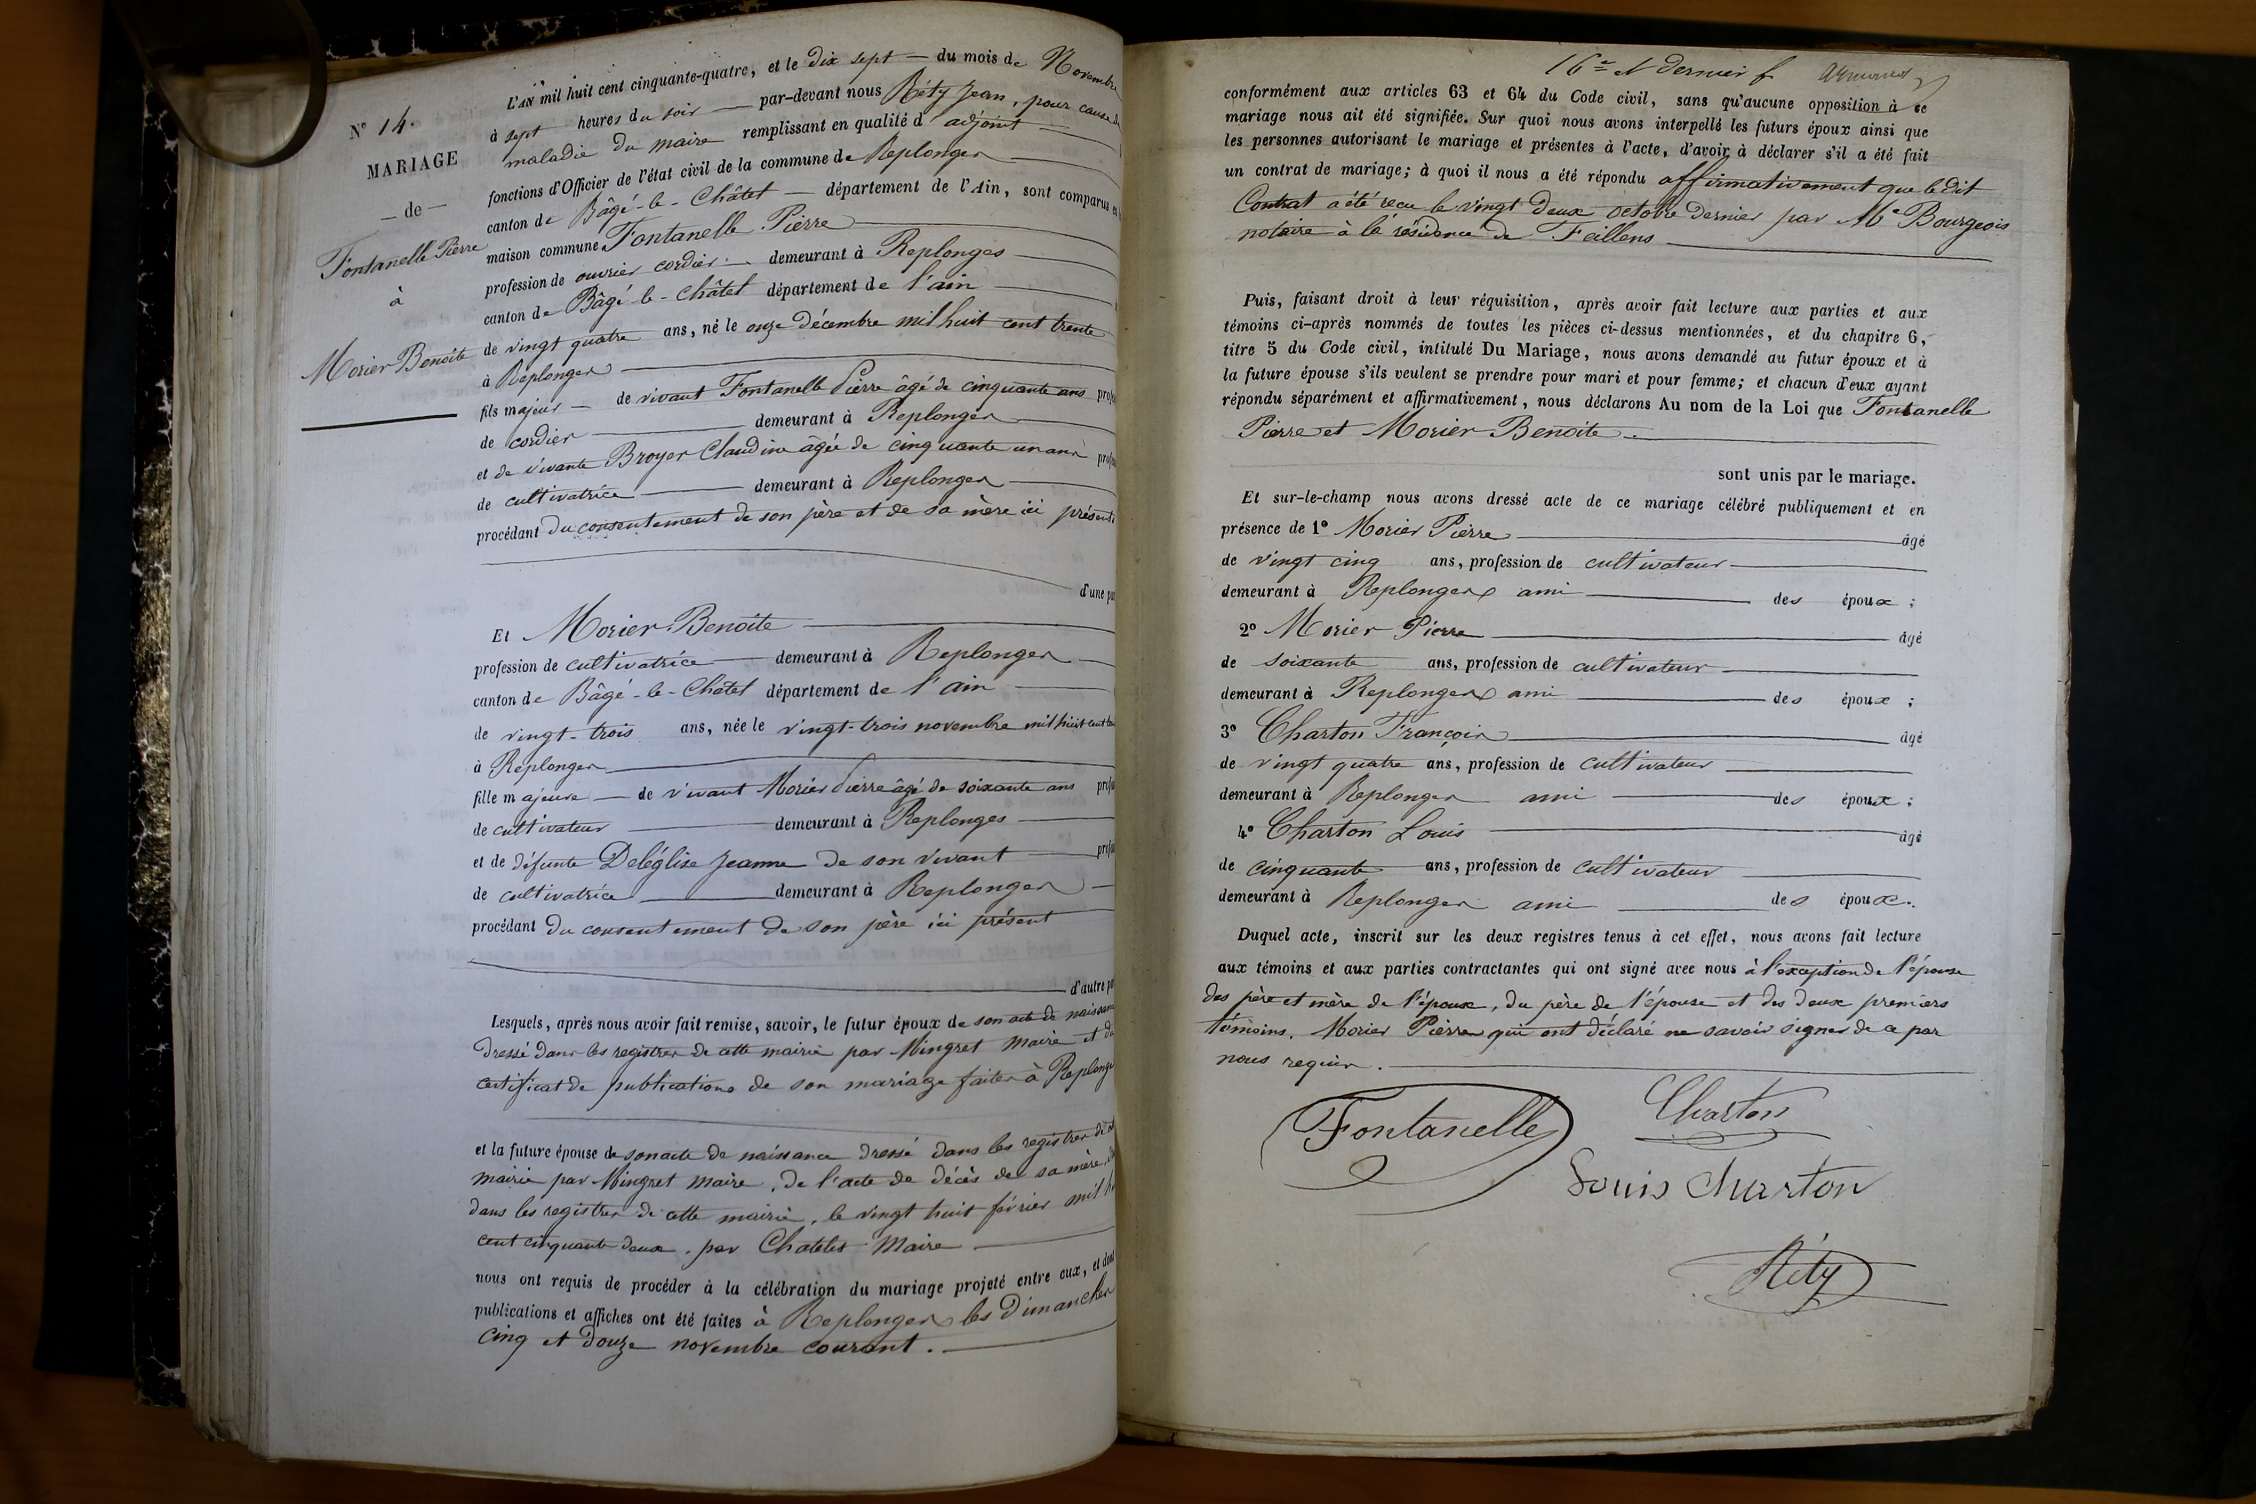 N° 14.
MARIAGE
— de —
Fontanelle Pierre
à
Morier Benoite
L'AN mil huit cent cinquante-quatre, et le dix sept — du mois de Novembre
à sept heures du soir — par-devant nous Réty Jean, pour cause de
maladie du maire remplissant en qualité d'adjoint
fonctions d'Officier de l'état civil de la commune de Replonges
canton de Bâgé-le-Châtel — département de l'Ain, sont comparus en
maison commune Fontanelle Pierre
profession de ouvrier cordier demeurant à Replonges
canton de Bâgé-le-Châtel département de l'ain
de vingt quatre ans, né le onze décembre mil huit cent trente
à Replonges
fils majeur — de vivant Fontanelle Pierre âgé de cinquante ans
de cordier demeurant à Replonges
et de vivante Broyer Claudine âgée de cinquante un ans
de cultivatrice demeurant à Replonges
procédant du consentement de son père et de sa mère ici présents
d'une
Et Morier Benoite
profession de cultivatrice demeurant à Replonges
canton de Bâgé-le-Châtel département de l'ain
de vingt-trois ans, née le vingt-trois novembre mil huit cent
à Replonges
fille majeure — de vivant Morier Pierre âgé de soixante ans
de cultivateur demeurant à Replonges
et de défunte Deléglise Jeanne de son vivant
de cultivatrice demeurant à Replonges
procédant du consentement de son père ici présent
d'autre
Lesquels, après nous avoir fait remise, savoir, le futur époux de son acte de naissance
dressé dans les registres de cette mairie par Mingret maire et du
certificat de publications de son mariage faites à Replonges
et la future épouse de son acte de naissance dressé dans les registres de
mairie par Mingret maire, de l'acte de décès de sa mère,
dans les registres de cette mairie, le vingt huit février mil
cent cinquante deux, par Chatelet Maire
nous ont requis de procéder à la célébration du mariage projeté entre eux, et dont
publications et affiches ont été faites à Replonges les Dimanches
cinq et douze novembre courant.
16e et dernier f
conformément aux articles 63 et 64 du Code civil, sans qu'aucune opposition à ce
mariage nous ait été signifiée. Sur quoi nous avons interpellé les futurs époux ainsi que
les personnes autorisant le mariage et présentes à l'acte, d'avoir à déclarer s'il a été fait
un contrat de mariage; à quoi il nous a été répondu affirmativement que ledit
Contrat a été reçu le vingt deux octobre dernier par Me Bourgeois
notaire à la résidence de Feillens
Puis, faisant droit à leur réquisition, après avoir fait lecture aux parties et aux
témoins ci-après nommés de toutes les pièces ci-dessus mentionnées, et du chapitre 6,
titre 5 du Code civil, intitulé Du Mariage, nous avons demandé au futur époux et à
la future épouse s'ils veulent se prendre pour mari et pour femme; et chacun d'eux ayant
répondu séparément et affirmativement, nous déclarons Au nom de la Loi que Fontanelle
Pierre et Morier Benoite.
sont unis par le mariage.
Et sur-le-champ nous avons dressé acte de ce mariage célébré publiquement et en
présence de 1° Morier Pierre âgé
de vingt cinq ans, profession de cultivateur
demeurant à Replonges ami des époux ;
2° Morier Pierre âgé
de soixante ans, profession de cultivateur
demeurant à Replonges ami des époux ;
3° Charton François âgé
de vingt quatre ans, profession de cultivateur
demeurant à Replonges ami des époux ;
4° Charton Louis âgé
de cinquante ans, profession de cultivateur
demeurant à Replonges ami des époux.
Duquel acte, inscrit sur les deux registres tenus à cet effet, nous avons fait lecture
aux témoins et aux parties contractantes qui ont signé avec nous à l'exception de l'épouse
des père et mère de l'époux, du père de l'épouse et des deux premiers
témoins. Morier Pierre qui ont déclaré ne savoir signer de ce par
nous requis.
Fontanelle
Charton
Louis Charton
Réty